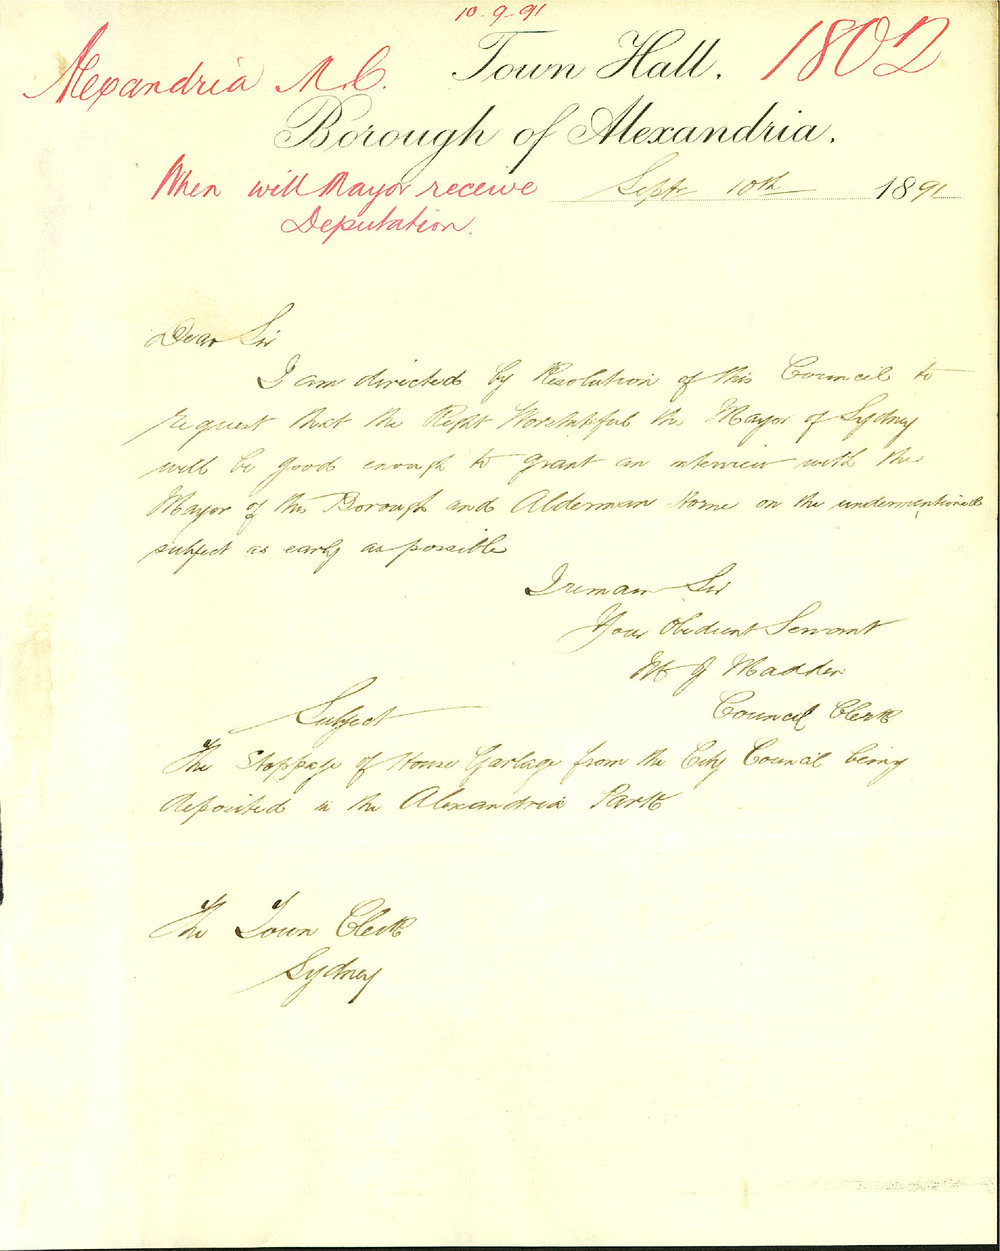 10-9-91
Alexandria M.C.
Town Hall.
1802
Borough of Alexandria.
When will Mayor receive
Deputation.
Septr 10th 1891
Dear Sir
I am directed by Resolution of this Council to
request that the Right Worshipful the Mayor of Sydney
will be good enough to grant an interview with the
Mayor of this Borough and Alderman Horne on the undermentioned
subject as early as possible
I remain Sir
Your Obedient Servant
M J Madden
Council Clerk
Subject
The Stoppage of House Garbage from the City Council being
deposited in the Alexandria Park
The Town Clerk
Sydney